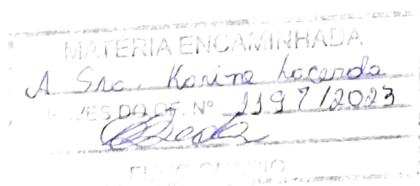 MATERIA ENCAMINHADA
A Sra. Karine Lacerda
DO OF. Nº 1197/2023